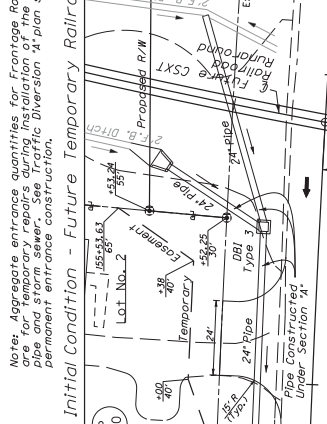 Note: Aggregate entrance quantities for Frontage Ro
are for temporary repairs during installation of the
pipe and storm sewer. See Traffic Diversion "A" plan s
permanent entrance construction.
Initial Condition Future Temporary Railro
Proposed R/W
Future CSXT
Railroad
Runaround
2' F.B. Ditch
24" Pipe
24" Pipe
+53.24
55'
155+53.63
65'
Easement
Lot No. 2
+38
40'
+52.25
30'
Temporary
DBI
Type 3
24'
24" Pipe
+00
40'
15' R
(Typ.)
Pipe Constructed
Under Section "A"